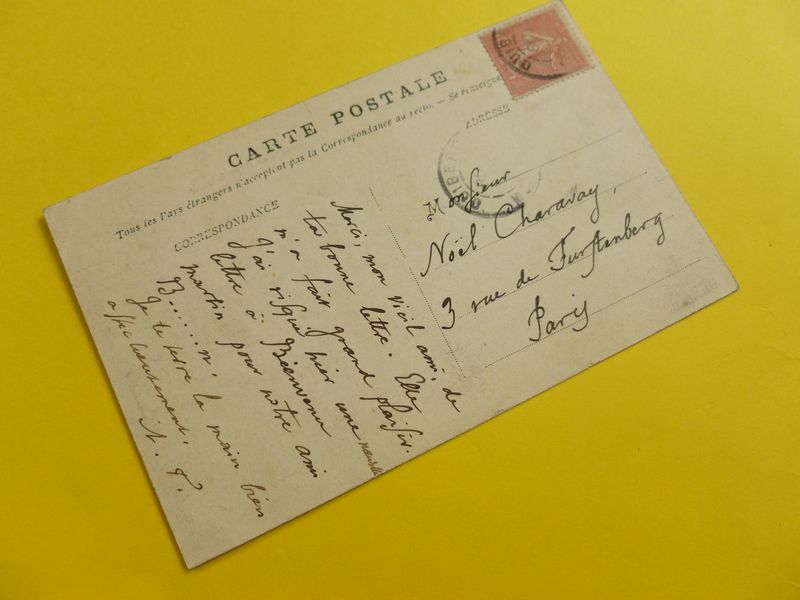 CARTE POSTALE
Tous les Pays étrangers n'acceptent pas la Correspondance au recto. — Se renseigner
CORRESPONDANCE
ADRESSE
Merci, mon vieil ami de
ta bonne lettre. Elle
m'a fait grand plaisir.
J'ai risqué hier une nouvelle
lettre à Bienvenu
martin pour notre ami
B......n.
Je te serre la main bien
affectueusement.
Monsieur
Noël Charavay,
3 rue de Furstenberg
Paris